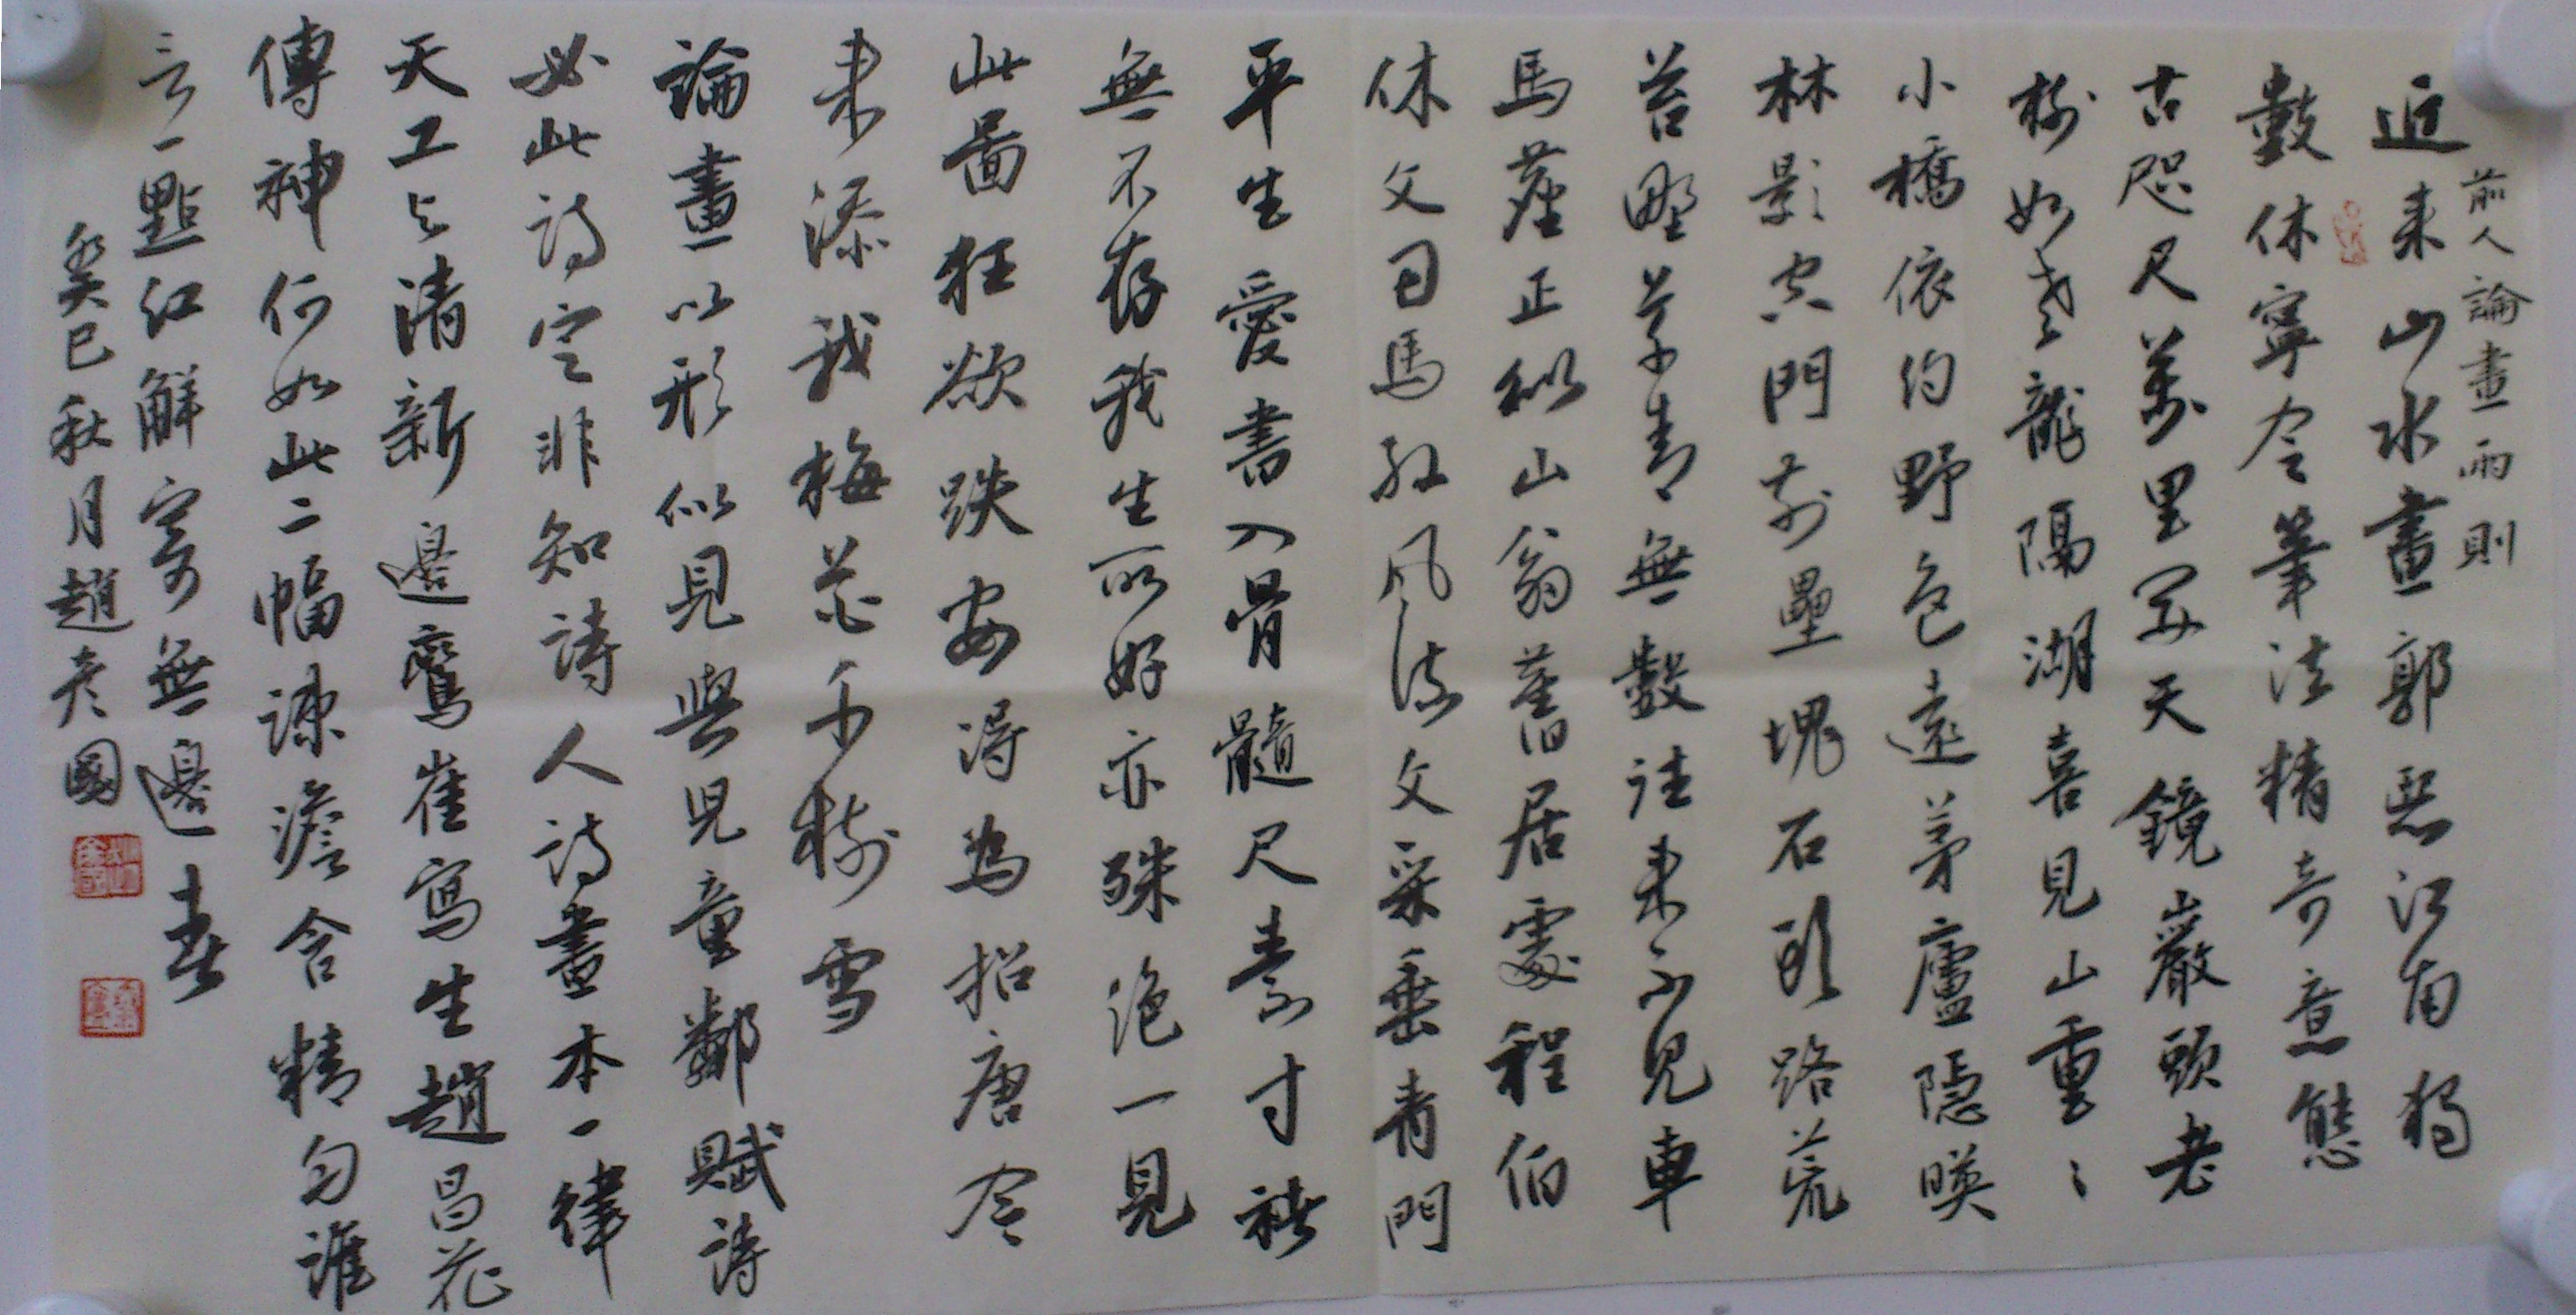 前人論畫兩則
近来山水畫郭熙江南獨
數休寧令筆法精奇意態
古咫尺萬里開天鏡巖頭老
樹如老龍隔湖喜見山重〻
小橋依約野色遠茅廬隱映
林影空門前壘塊石頭路荒
苔野草青無數往来不見車
馬塵正似山翁舊居處程伯
休文司馬孫風流文采垂青門
平生愛書入骨髓尺素寸楮
無不存我生所好亦殊絶一見
此圖狂欲跌安得為招唐令
来添我梅花千樹雪
論畫以形似見與兒童鄰賦詩
必此詩定非知詩人詩畫本一律
天工与清新邊鸞雀寫生趙昌花
傳神何如此二幅疎澹含精匀誰
言一點紅解寄無邊春
癸巳秋月趙彦國